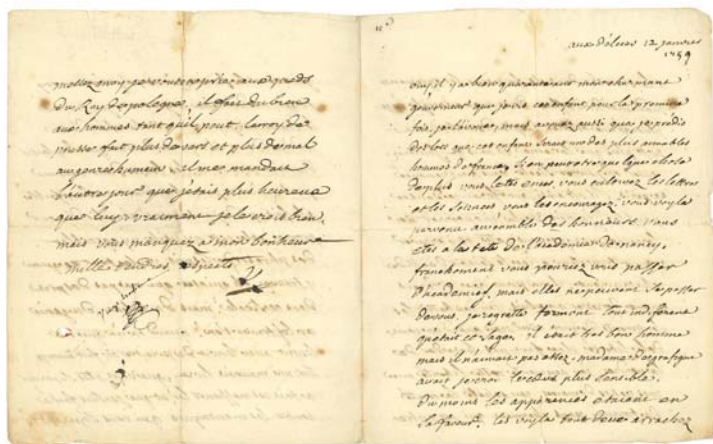 mettez moy je vous en prie aux pieds
du Roy de pologne, il fait du bien
aux hommes tant quil peut. le roy de
prusse fait plus de vers et plus de mal
au genre humain. il me mandait
l'autre jour que jetais plus heureux
que luy. vraiment je le crois bien
mais vous manquez a mon bonheur
mille tendres respects
V
aux délices 12 janvier
1759
ouy, il y a bien quarante ans mon charmant
gouverneur que je vis cet enfant pour la premiere
fois, je l'avoue, mais avouez aussi que je predis
des lors que cet enfant serait un des plus aimables
hommes de france. si on peut etre quelque chose
de plus vous letes encor, vous cultivez les lettres
et les sciences vous les encouragez, vous voyla
parvenu au comble des honneurs. vous
etes a la tete de l'academie de nancy.
franchement vous pouriez vous passer
d'academies, mais elles ne peuvent se passer
de vous. je regrette formont tout indiferent
quetait ce sage. il etait tres bon homme
mais il naimait pas assez. madame de grafigni
avait je croi le cœur plus sensible.
du moins les apparences etaient en
sa faveur. les voyla tout deux arrachez